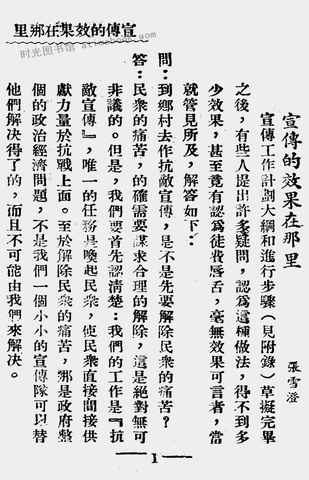 宣傳的效果在那里
宣傳的效果在那里
張雪澄
宣傳工作計劃大綱和進行步驟（見附錄）草擬完畢
之後，有些人提出許多疑問，認爲這種做法，得不到多
少效果，甚至竟有認爲徒費唇舌，毫無效果可言者，當
就管見所及，解答如下：
問：到鄉村去作抗敵宣傳，是不是先要解除民衆的痛苦？
答：民衆的痛苦，的確需要謀求合理的解除，這是絕對無可
非議的。但是，我們要首先認清楚：我們的工作是『抗
敵宣傳』，唯一的任務是喚起民衆，使民衆直接間接供
獻力量於抗戰上面。至於解除民衆的痛苦，那是政府整
個的政治經濟問題，不是我們一個小小的宣傳隊可以替
他們解決得了的，而且不可能由我們來解決。
1